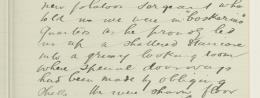 new platoon Sergeant who
told us we were in "
quarters as he proudly led
us up a shattered staircase
into a greasy looking room
where special doorways
had been made by obliging
shells. We were shown floor